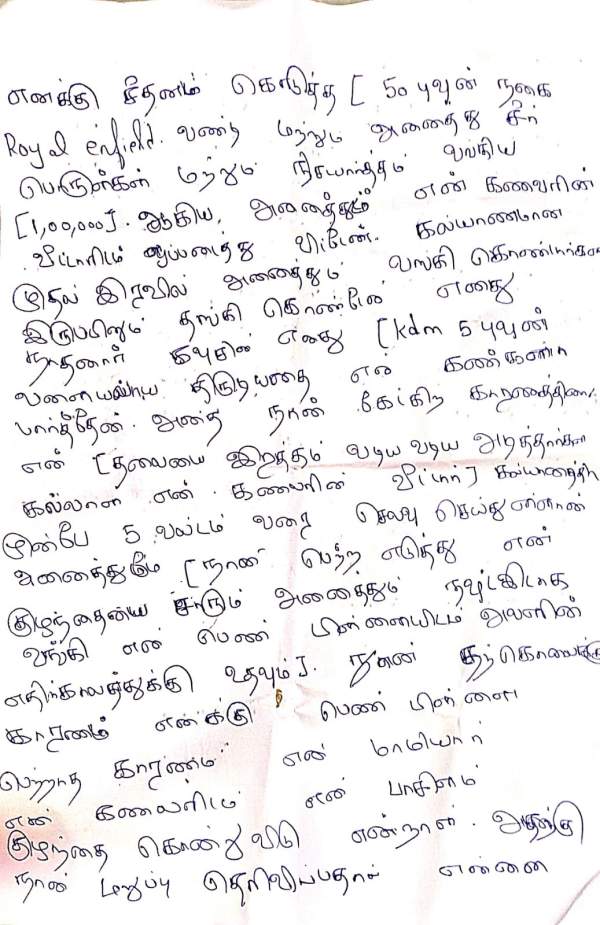 எனக்கு சீதனம் கொடுத்த [ 50 புவுன் நகை
Royal enfield. வண்டி மற்றும் அனைத்து சீர்
பொருள்கள் மற்றும் நிச்சயார்த்தம் வங்கிய
[1,00,000]. ஆகிய, அனைத்தும் என் கணவரின்
வீட்டாரிடம் ஒப்படைத்து விட்டேன். கல்யாணமான
முதல் இரவில் அனைத்தும் வாங்கி கொண்டார்கள்
இருப்பினும் தாங்கி கொண்டேன் எனது
நாத்தனார் எனது [kdm 5 புவுன்
வளையலை திருடியதை என் கண்களால்
பார்த்தேன். அதை நான் கேட்கிற காரணத்தினால்
என் [தலையை இரத்தம் வடிய வடிய அடித்தார்கள்
கல்லால் என் கணவரின் வீட்டார்] கல்யாணத்திற்கு
முன்பே 5 லட்சம் வரை செலவு செய்துள்ளான்
அனைத்துமே [நான் பெற்ற எடுத்து என்
குழந்தையை சாரும் அனைத்தும் நஷ்டஈடாக
வாங்கி என் பெண் பிள்ளையிடம் அவளின்
எதிர்காலத்துக்கு உதவும்]. நான் தற்கொலைக்கு
காரணம் எனக்கு பெண் பிள்ளை
பெற்றாத காரணம் என் மாமியார்
என் கணவரிடம் என்
குழந்தை கொன்று விடு என்றாள். அதற்கு
நான் மறுப்பு தெரிவிப்பதால் என்னை